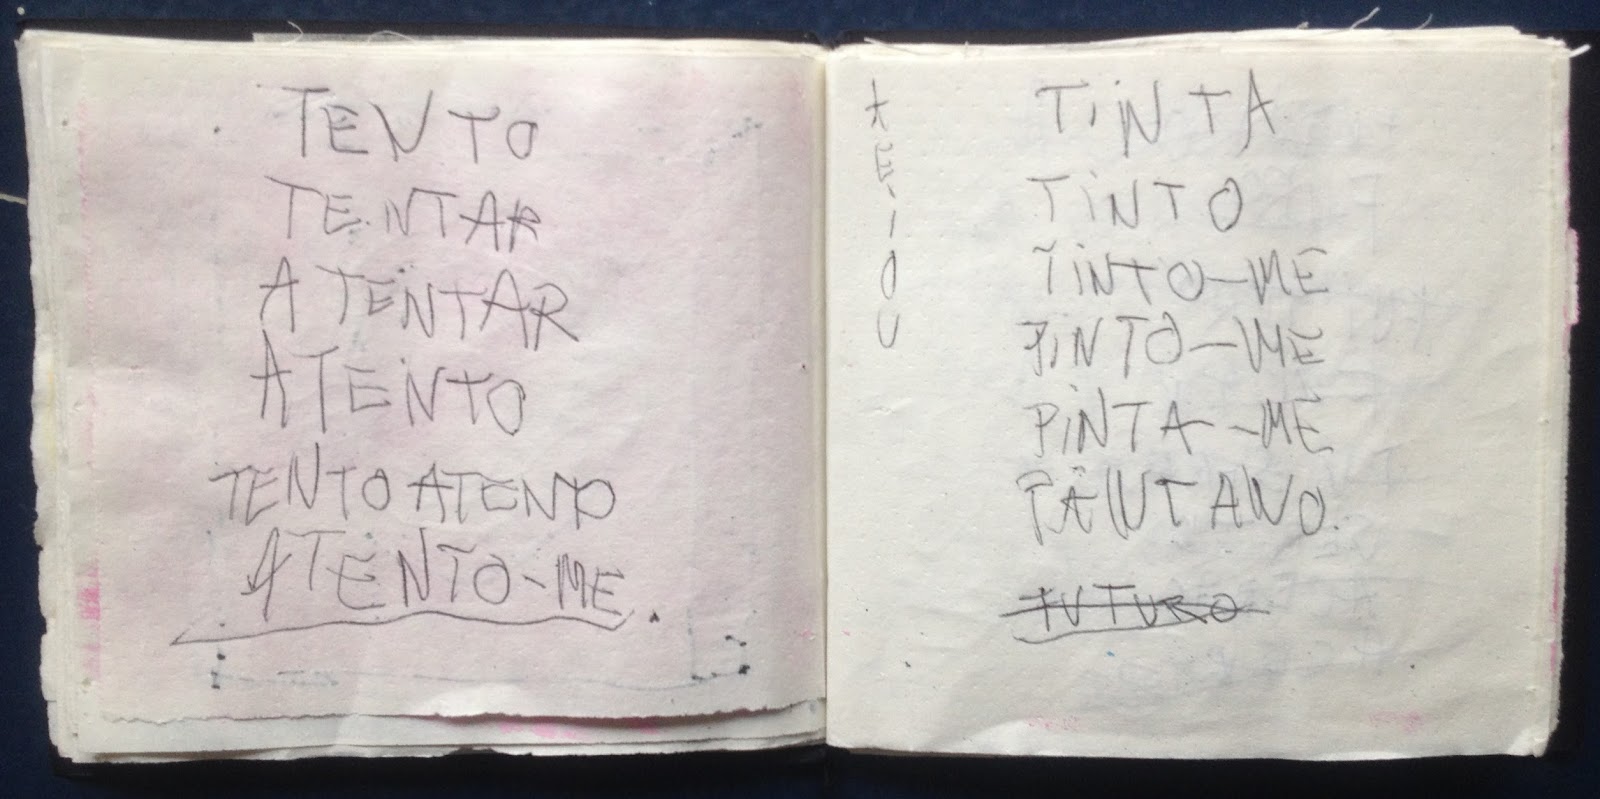 TENTO
TENTAR
ATENTAR
ATENTO
TENTO ATENTO
ATENTO-ME.
A
E
I
O
U
TINTA
TINTO
TINTO-ME
PINTO-ME
PINTA-ME
PÂNTANO.
FUTURO